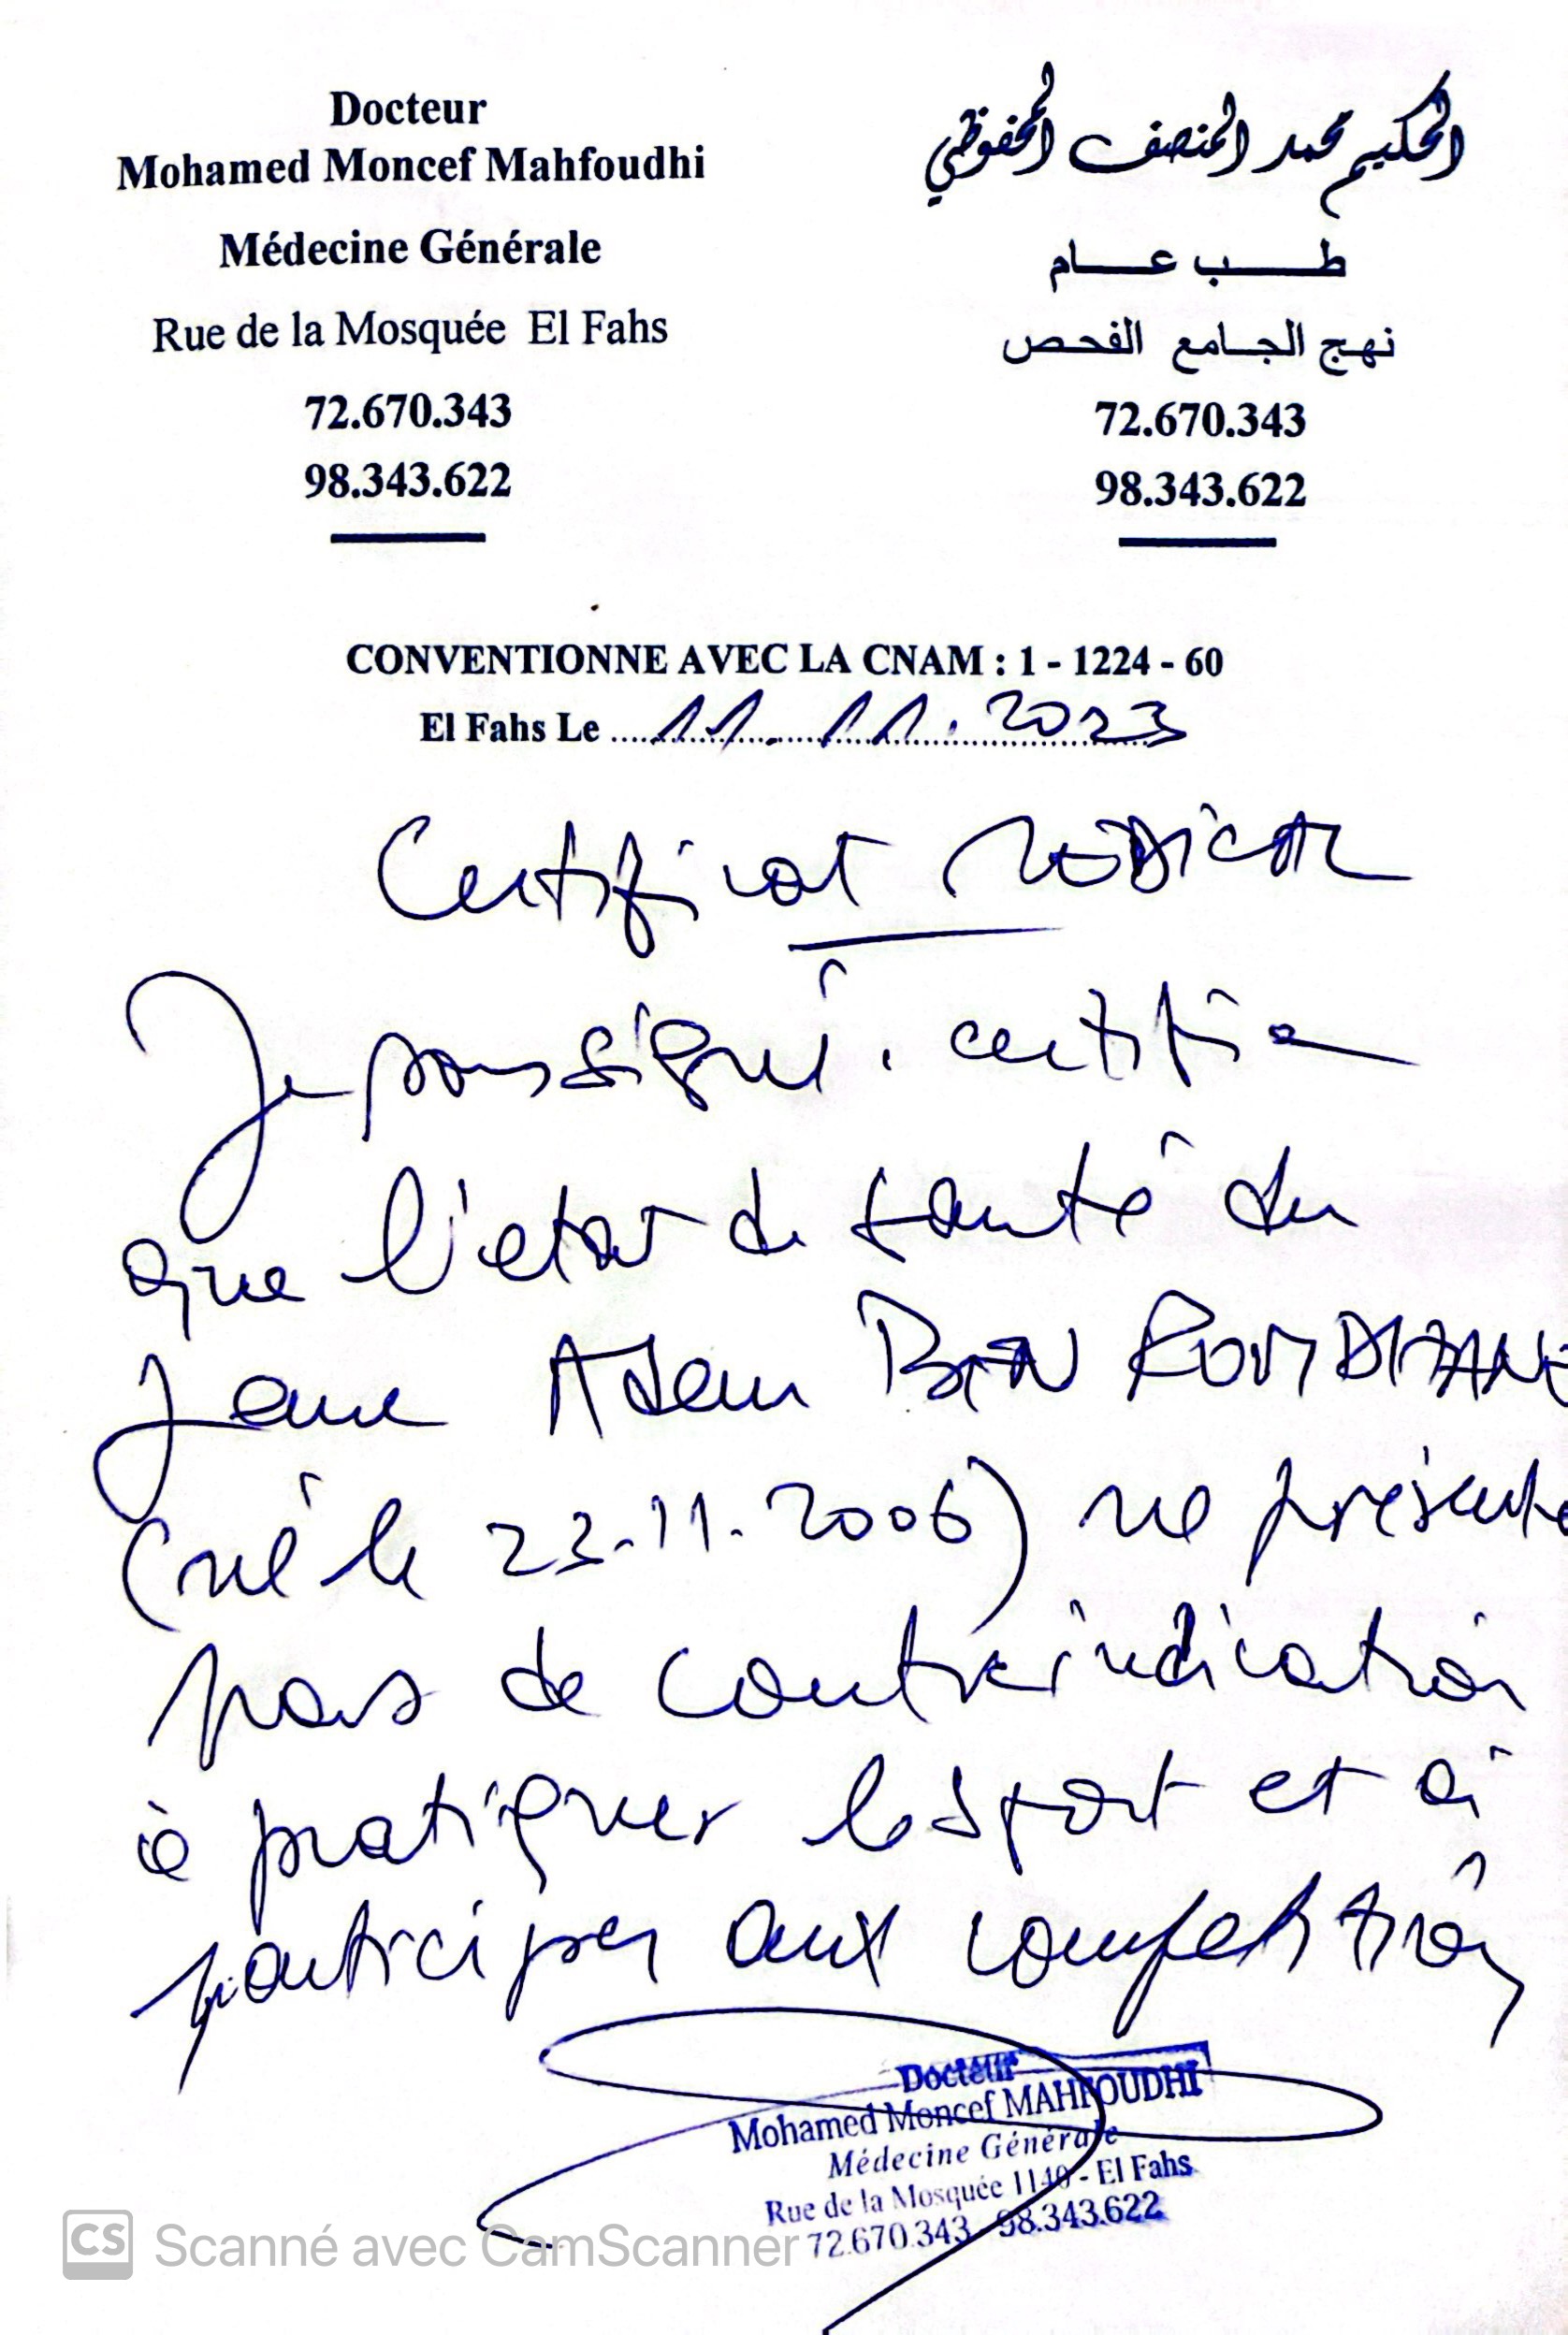 Docteur
Mohamed Moncef Mahfoudhi
Médecine Générale
Rue de la Mosquée El Fahs
72.670.343
98.343.622
الحكيم محمد المنصف المحفوظي
طب عام
نهج الجامع الفحص
72.670.343
98.343.622
CONVENTIONNE AVEC LA CNAM : 1 - 1224 - 60
El Fahs Le 11. 11. 2023
Certificat MéDICAL
Je soussigné. certifie
que l'état de santé du
Jeune Adem BEN ROMDHANE
(né le 23-11-2006) ne présente
pas de contreindication
à pratiquer le sport et à
participer aux compétition
Docteur
Mohamed Moncef MAHFOUDHI
Médecine Générale
Rue de la Mosquée 1140 - El Fahs
72.670.343 - 98.343.622
CS Scanné avec CamScanner